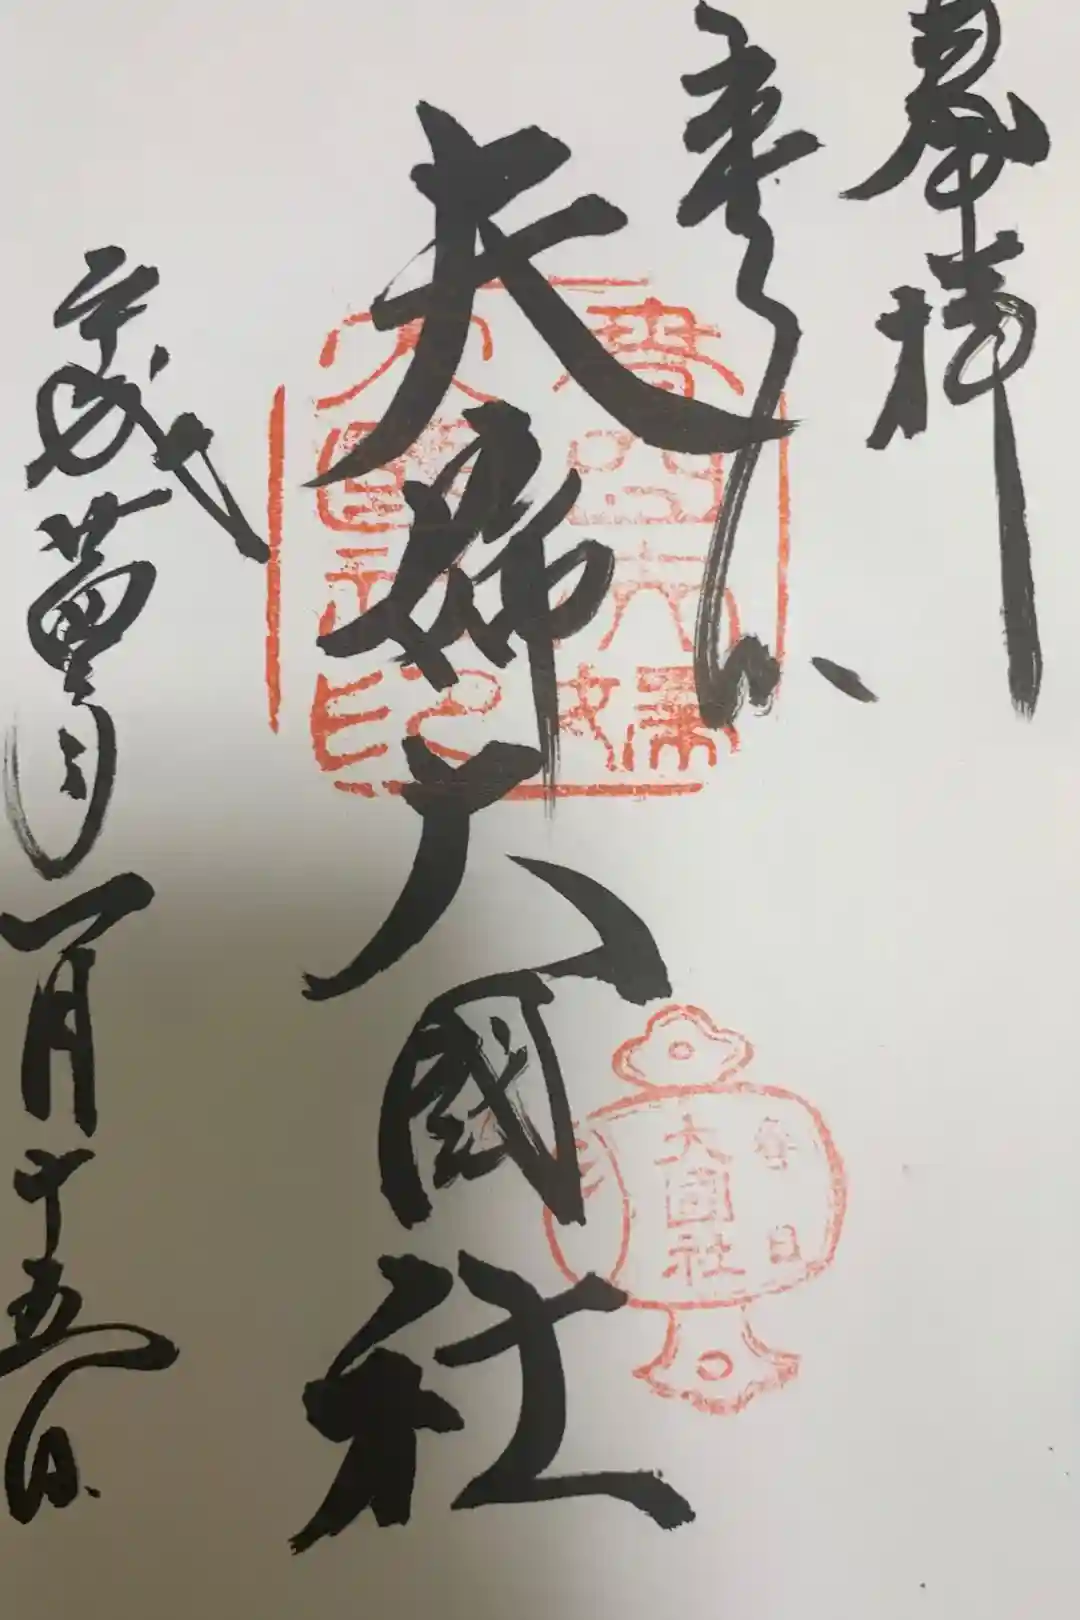 奉拝
夫婦大國社
平成
一月十五日
春日夫婦
大國社印
春日
大國社